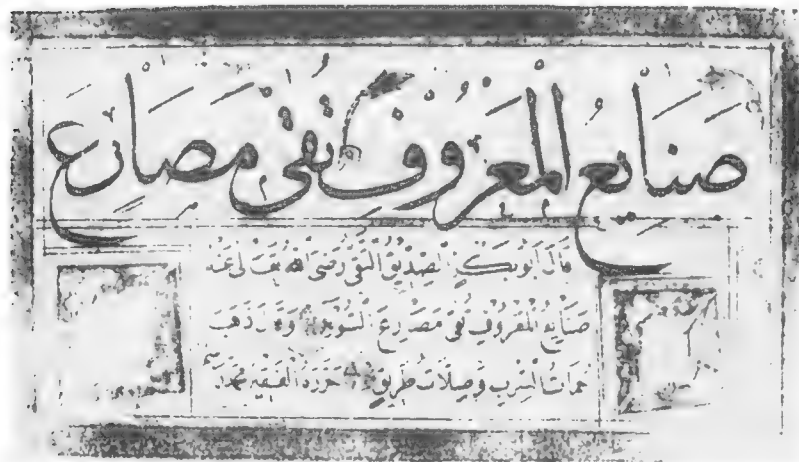 صَنَايِعُ الْمَعْرُوفِ تَقِى مَصَارِعَ
قال ابوبكر الصديق التقى رضى الله تعالى عنه
صنايع المعروف تقى مصارع السوء وقال ذهب
طريق حرره الفقير محمد